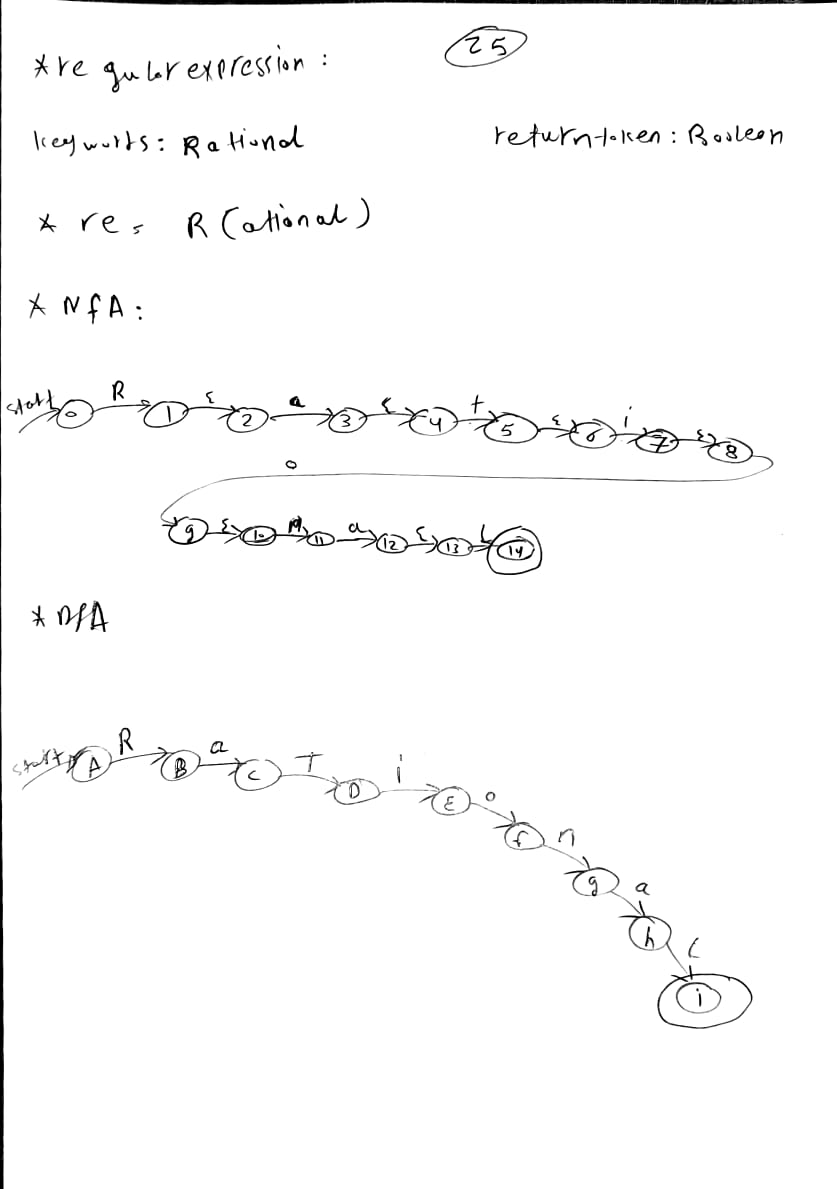 25
* regular expression :
keyworts: Rational return token : Boolean
* re = R (ational)
* NfA :
start 0 R 1 ε 2 a 3 ε 4 t 5 ε 6 i 7 ε 8
o
9 ε 10 n 11 a 12 ε 13 L 14
* DfA
start A R B a C T D i E o f n g a h L i